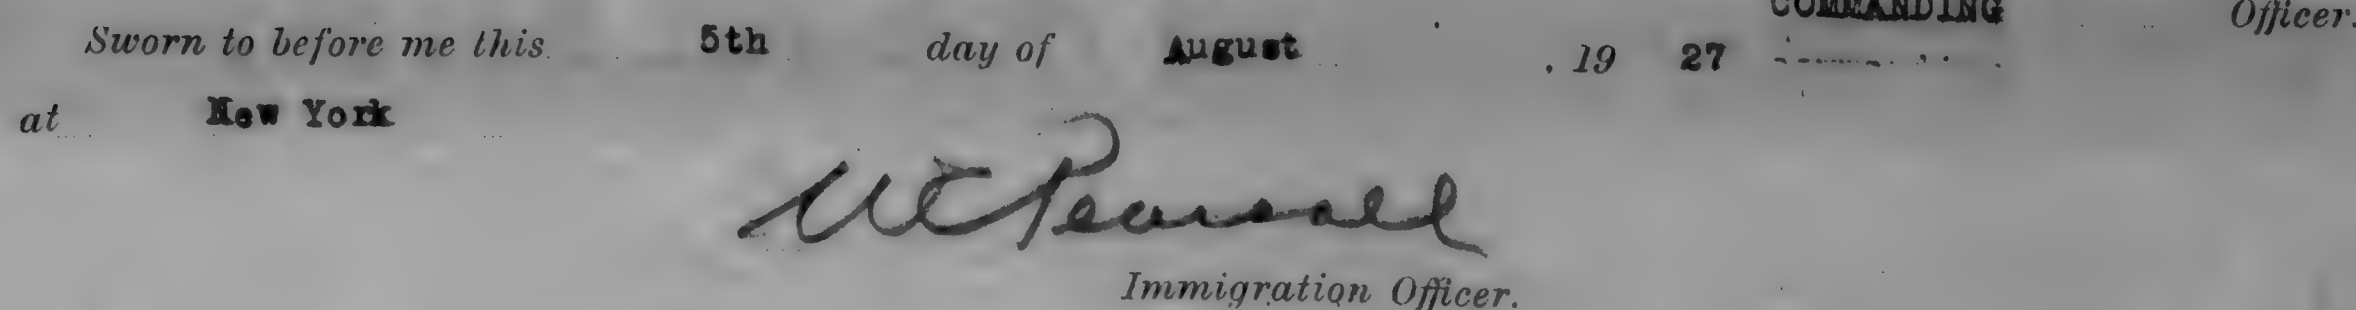 COMMANDING Officer.
Sworn to before me this 5th day of August, 19 27
at New York
WC Pearsall
Immigration Officer.